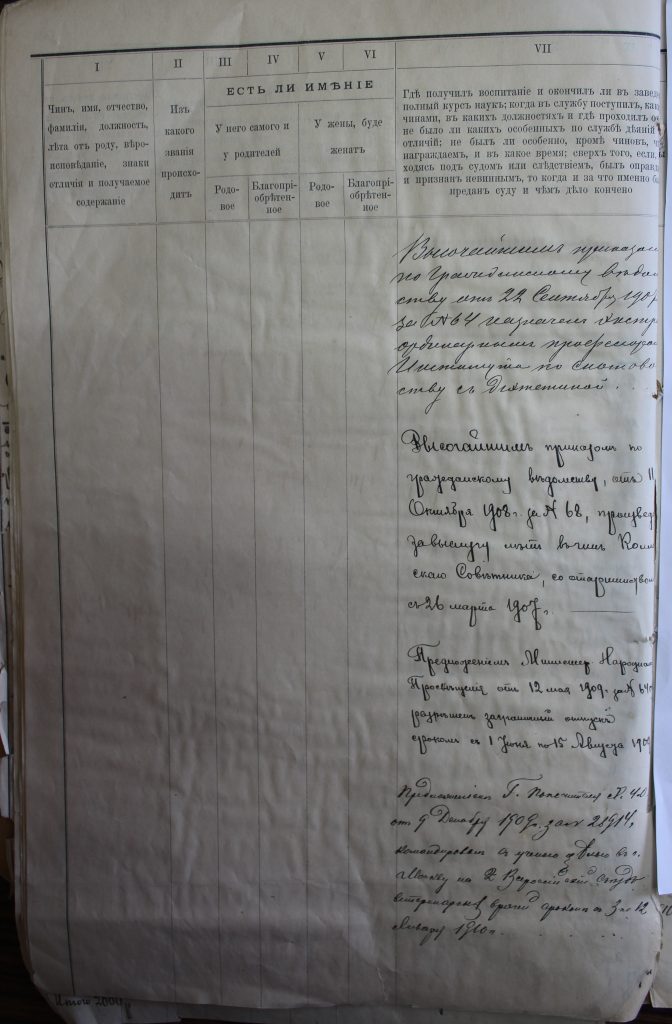 I II III IV V VI VII
Чинъ, имя, отчество,
фамилія, должность,
лѣта отъ роду, вѣро-
исповѣданіе, знаки
отличія и получаемое
содержаніе
Изъ
какого
званія
происхо-
дитъ
ЕСТЬ ЛИ ИМѢНІЕ
У него самого и
у родителей
У жены, буде
женатъ
Родо-
вое
Благопрі-
обрѣтен-
ное
Родо-
вое
Благопрі-
обрѣтен-
ное
Гдѣ получилъ воспитаніе и окончилъ ли въ завед
полный курсъ наукъ; когда въ службу поступилъ, как
чинами, въ какихъ должностяхъ и гдѣ проходилъ о
не было ли какихъ особенныхъ по службѣ дѣяній
отличій; не былъ ли особенно, кромѣ чиновъ, ч
награждаемъ, и въ какое время; сверхъ того, если,
ходясь подъ судомъ или слѣдствіемъ, былъ оправд
и признанъ невиннымъ, то когда и за что именно б
преданъ суду и чѣмъ дѣло кончено
Высочайшимъ приказом
по гражданскому вѣдом
ству отъ 22 Сентября 190
за № 64 назначенъ экстр
ординарнымъ профессором
Института по скотово
ству съ
Высочайшимъ приказомъ по
гражданскому вѣдомству, отъ 11
Октября 1908 г. за № 68, произвед
за выслугу лѣтъ въ чинъ Колл
скаго Совѣтника, со старшинством
съ 26 марта 1907 г.
Предложеніемъ Министер. Народна
Просвѣщенія отъ 12 мая 1909 г. за №
разрѣшенъ заграничный отпускъ
срокомъ съ 1 Іюня по 15 Августа 190
Предложеніемъ Г. Попечителя
от 9 Декабря 1909 г. за № 28914,
командированъ съ ученою цѣлью въ г.
Москву на Всероссійскій съѣздъ
ветеринарныхъ врачей срокомъ съ 3 по 12
Января 1910 г.